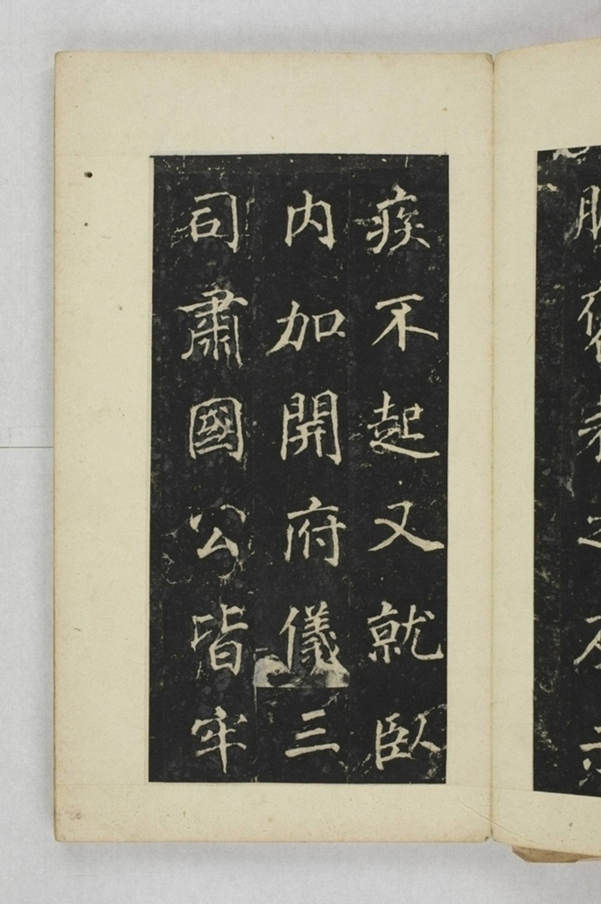 疾不起又就臥
内加開府儀三
司肅國公皆牢